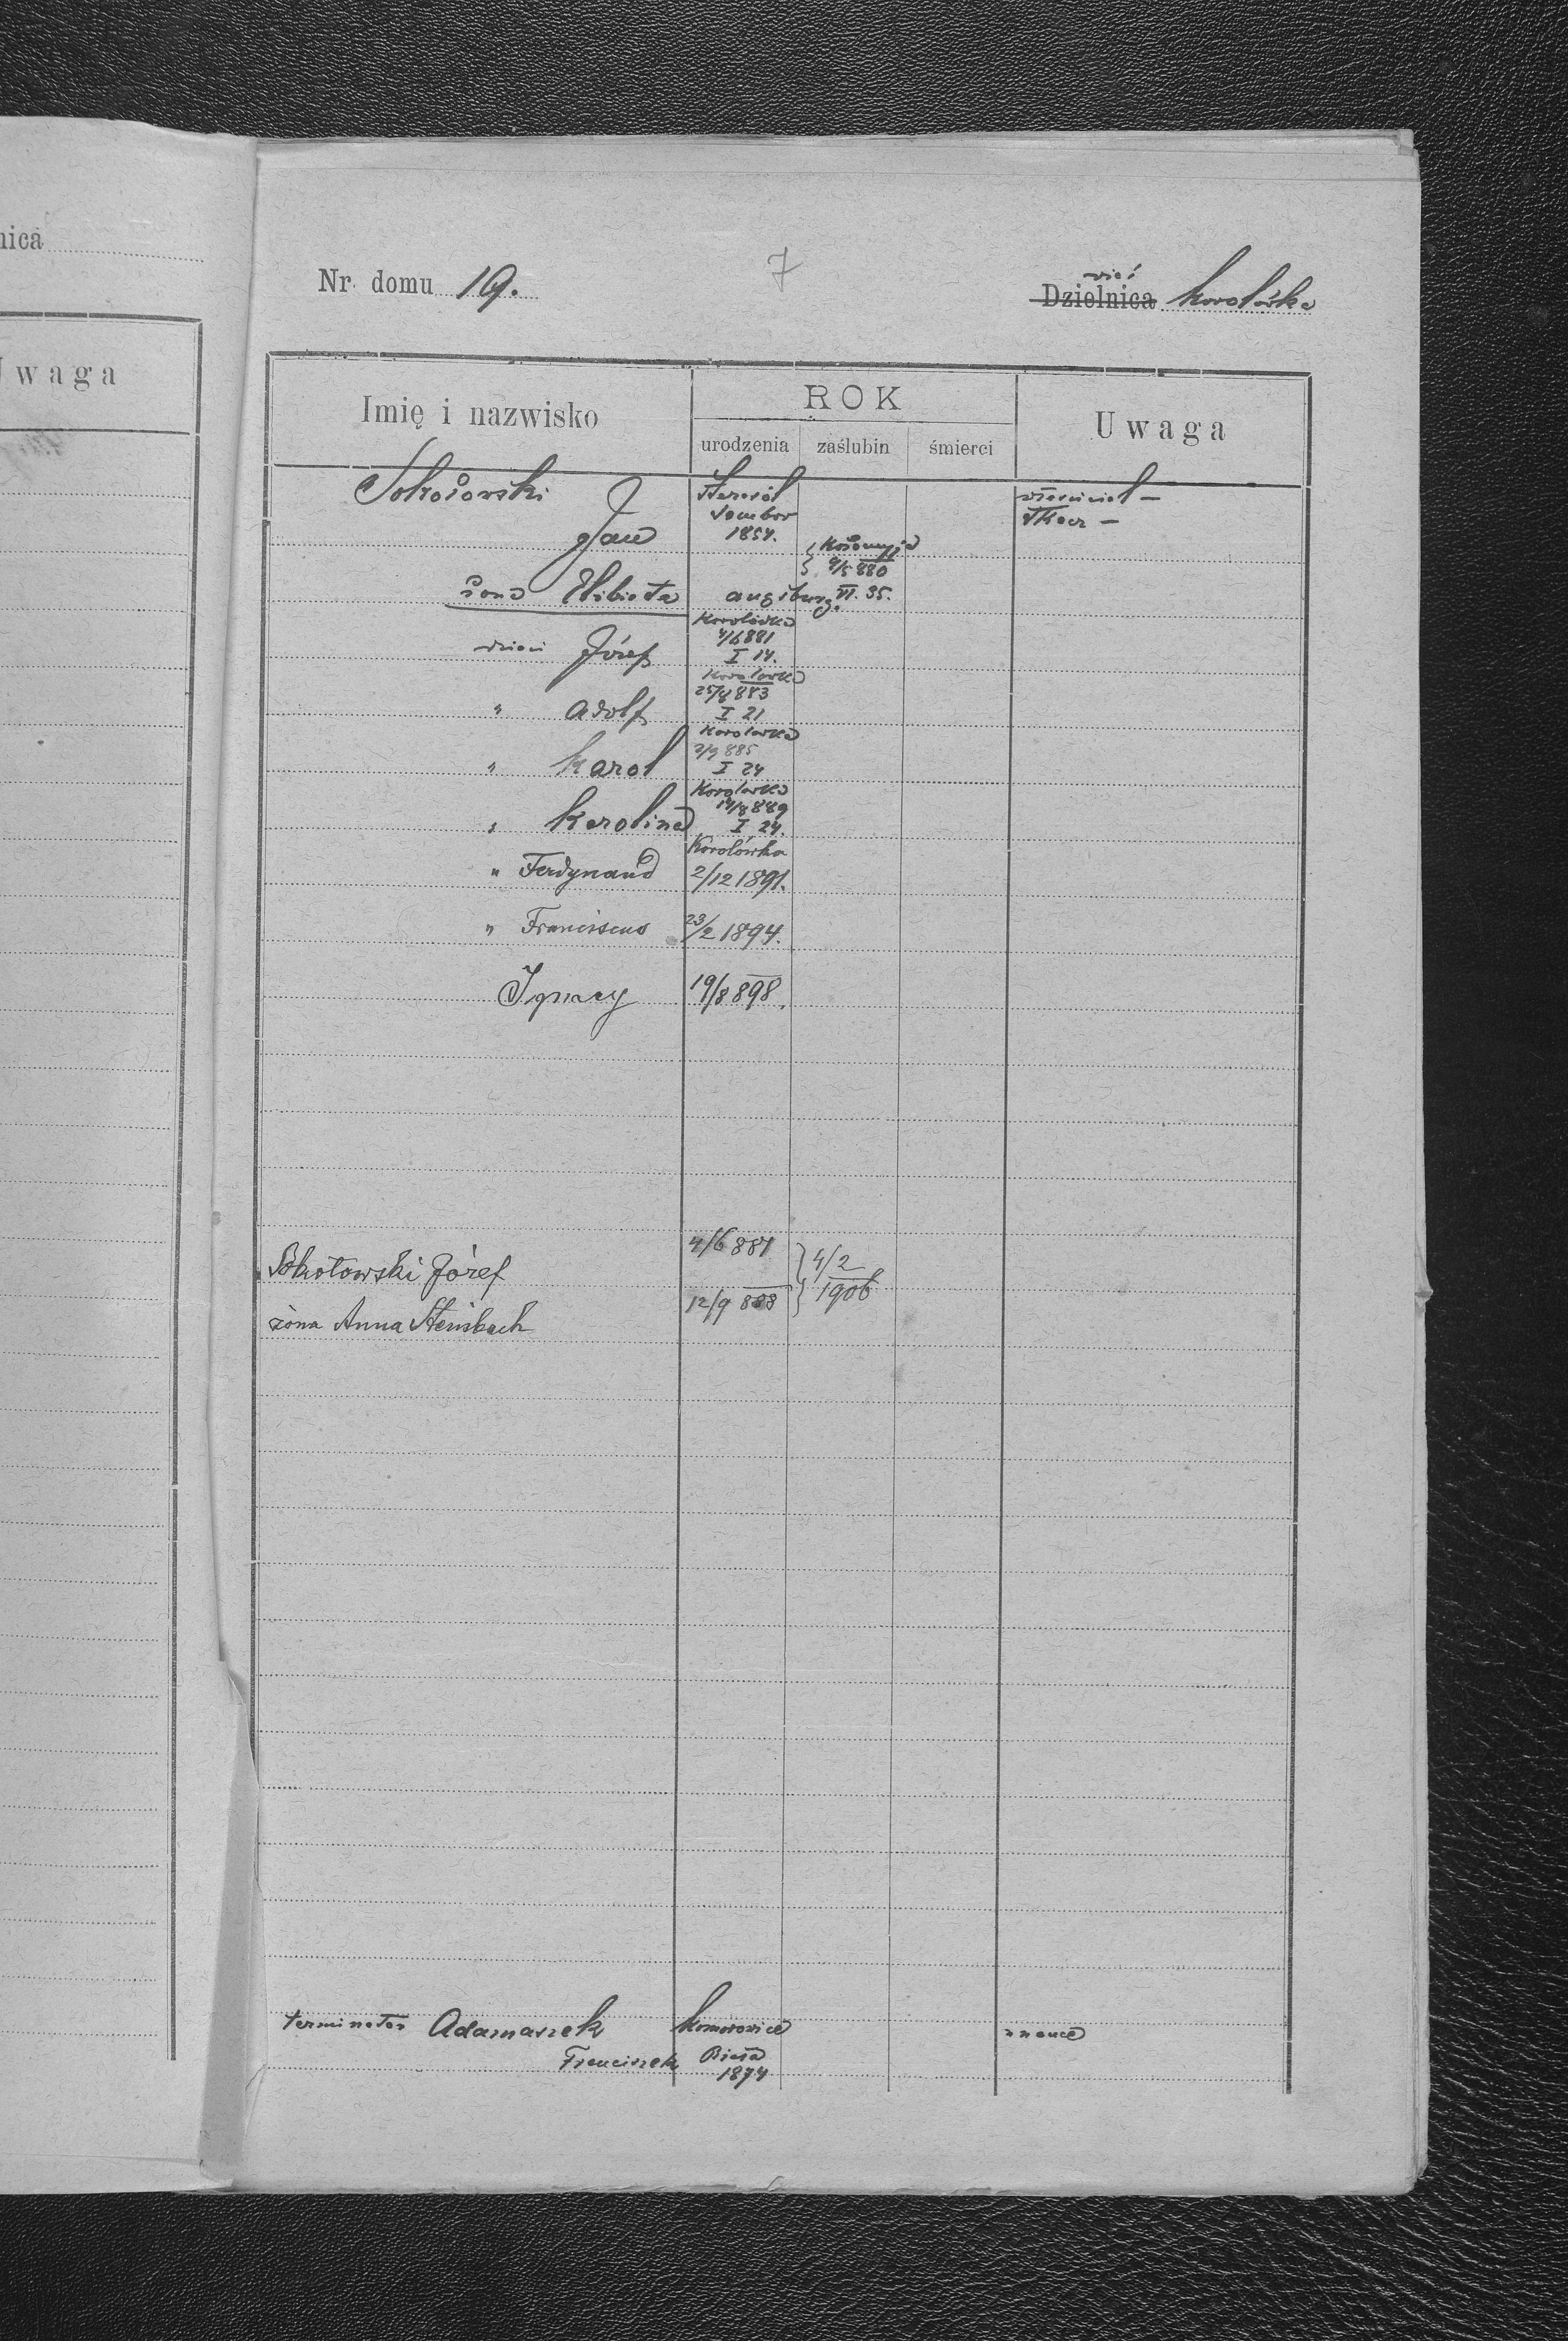 nica
Uwaga
Nr. domu 19.
7
wieś
Dzielnica Korolówka
Imię i nazwisko
ROK
urodzenia zaślubin śmierci
Uwaga
Sokołowski
Jan
Sambor
1854.
właściciel –
Tkacz –
Kołomyja
9/5 880
żona Elżbieta augsburg. VI. 35.
Korolówka
dzieci Józef 4/6 881
I 14.
Korolówka
" Adolf 25/8 883
I 21
Korolówka
" Karol 2/9 885
I 24
Korolówka
" Karolina 14/8 889
I 24.
Korolówka
" Ferdynand 2/12 1891.
" Franciscus 23/2 1894.
Ignacy 19/8 898.
Sokołowski Józef 4/6 881 4/2
1906
żona Anna Steinbach 12/9 888
terminator Adamaszek Komorowice
Franciszek Biała
1874